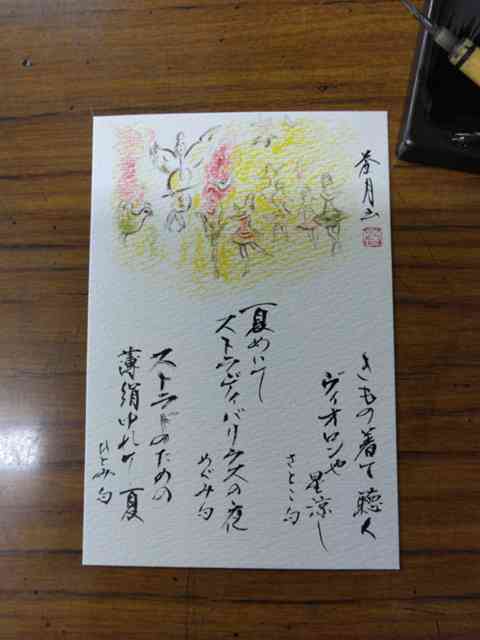 月
きもの着て聴く
ヴィオロンや
星涼し
さとこ句
夏めいて
ストラディバリウスの夜
めぐみ句
ストラドのための
薄絹ゆれて夏
ひとみ句